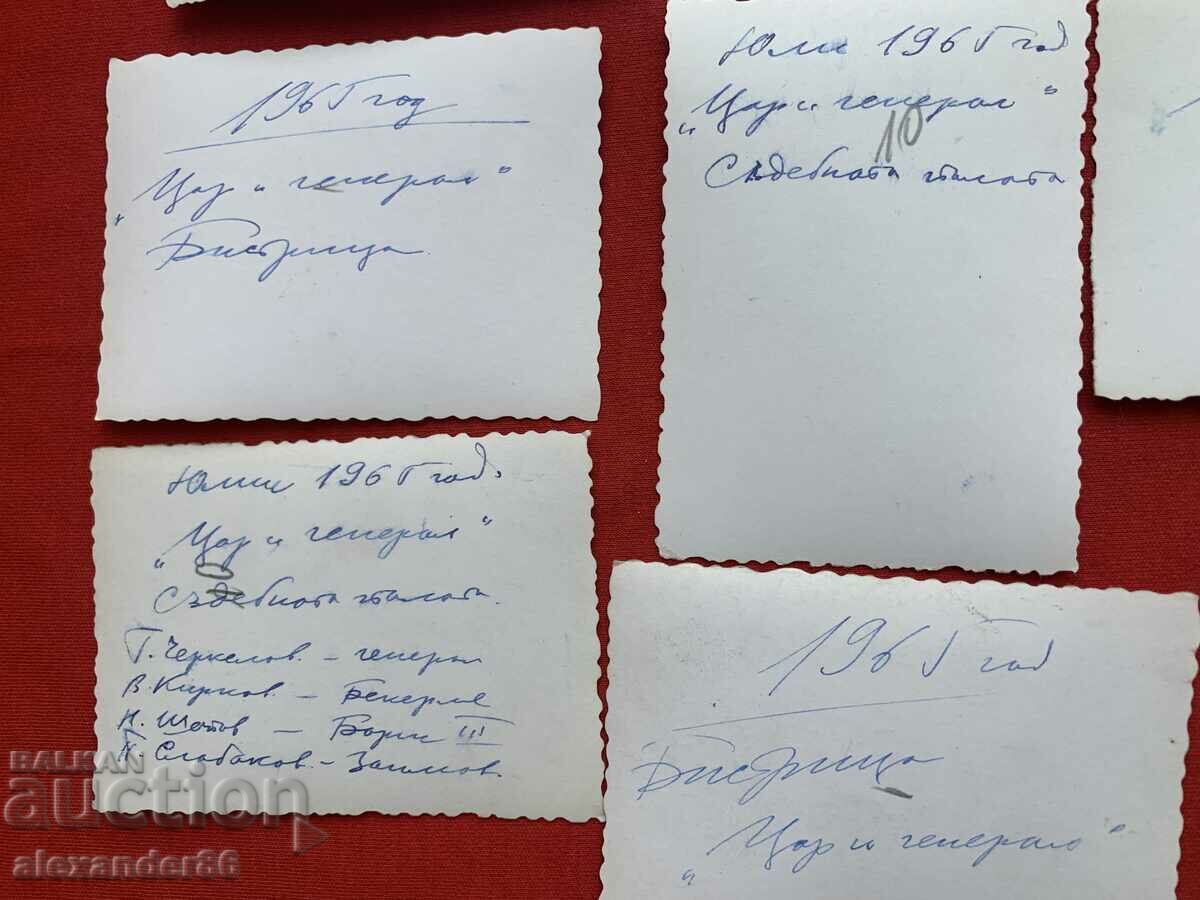 1965 год
„Цар и генерал"
Бистрица.
Юли 1965 год
„Цар и генерал"
10
Съдебната палата
Юли 1965 год.
„Цар и генерал"
Съдебната палата.
Г. Черкелов. – генерал
В. Кирков. – Бекерле
Н. Шопов – Борис III
П. Слабаков. – Заимов.
1965 год
Бистрица
„Цар и генерал"
BALKAN
auction
alexander86